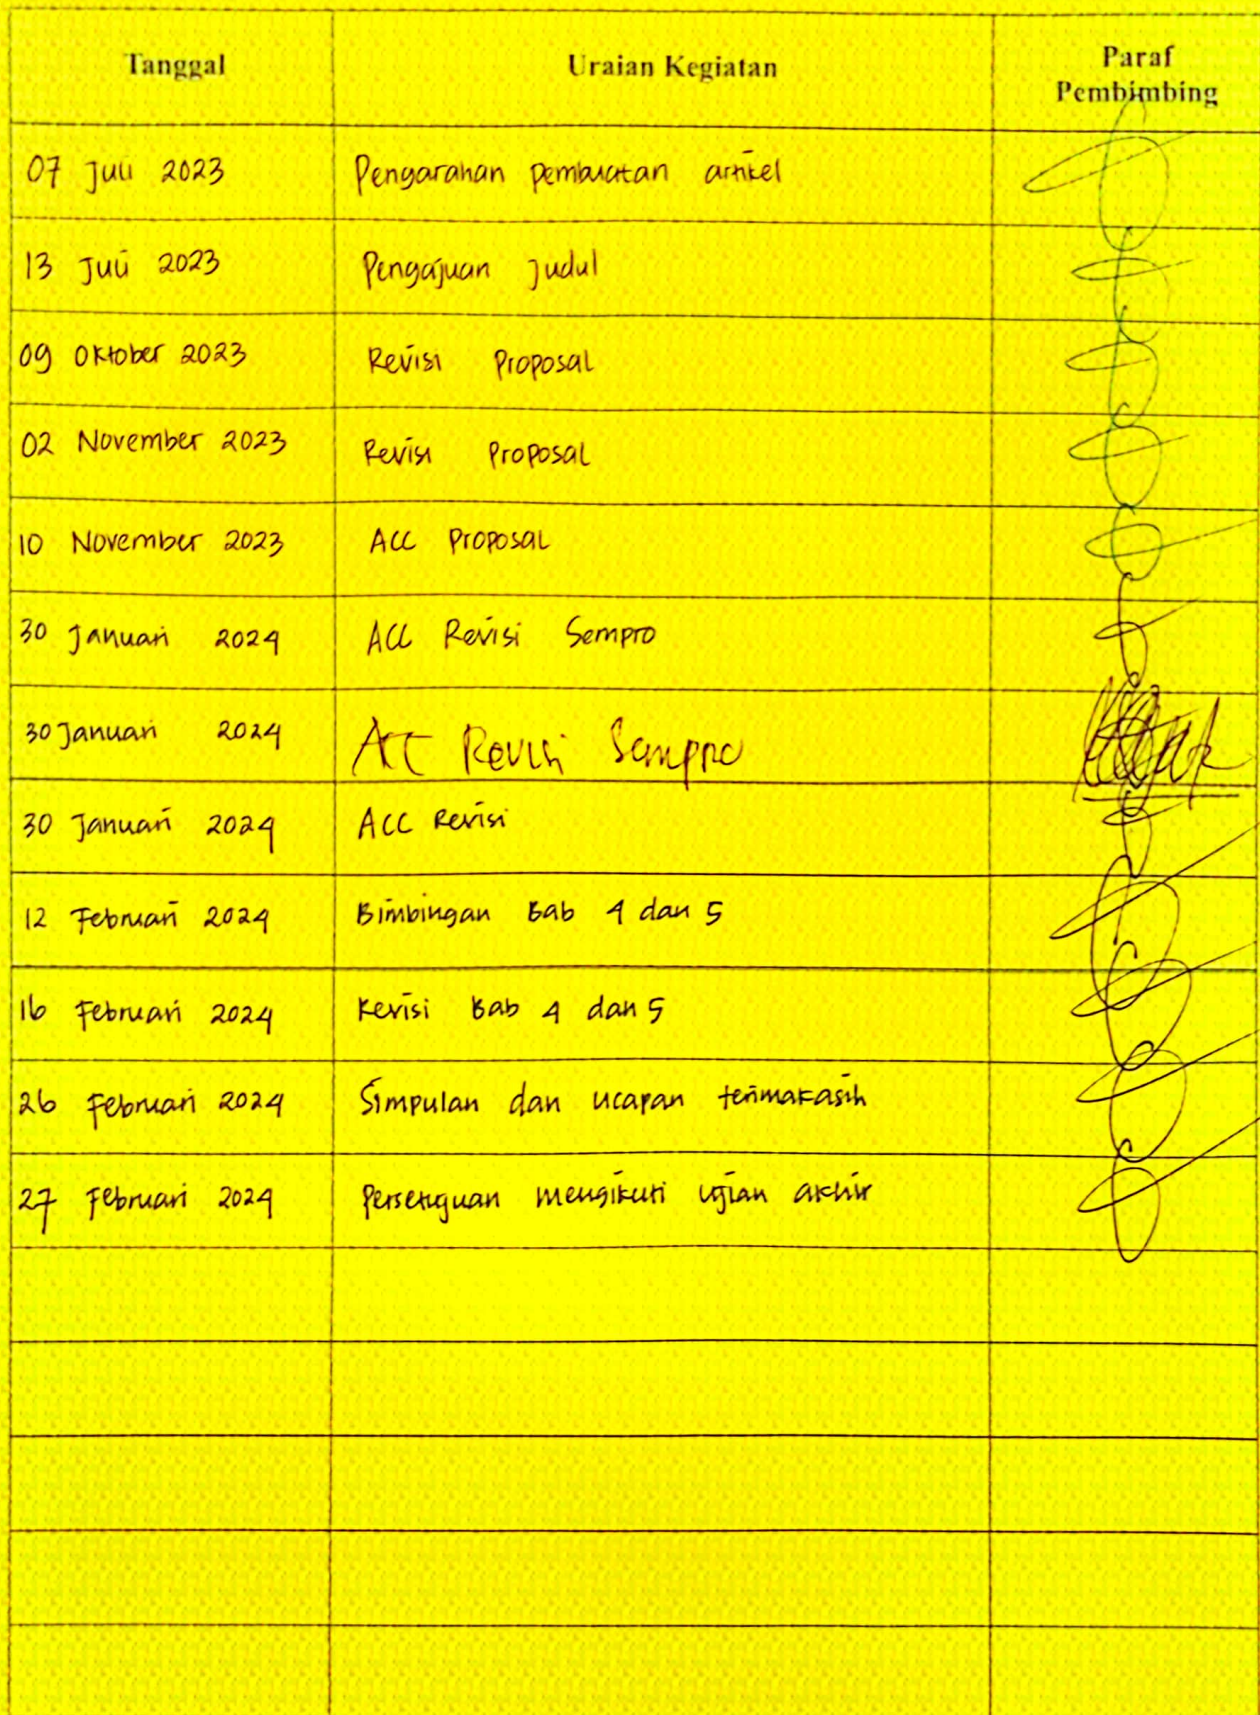 Tanggal Uraian Kegiatan Paraf Pembimbing
07 Juli 2023 Pengarahan pembuatan artikel
13 Juli 2023 Pengajuan Judul
09 Oktober 2023 Revisi Proposal
02 November 2023 Revisi Proposal
10 November 2023 ACC Proposal
30 Januari 2024 ACC Revisi Sempro
30 Januari 2024 ACC Revisi Sempro
30 Januari 2024 ACC Revisi
12 Februari 2024 Bimbingan Bab 4 dan 5
16 Februari 2024 Revisi Bab 4 dan 5
26 Februari 2024 Simpulan dan ucapan terimakasih
27 Februari 2024 Persetujuan mengikuti ujian akhir